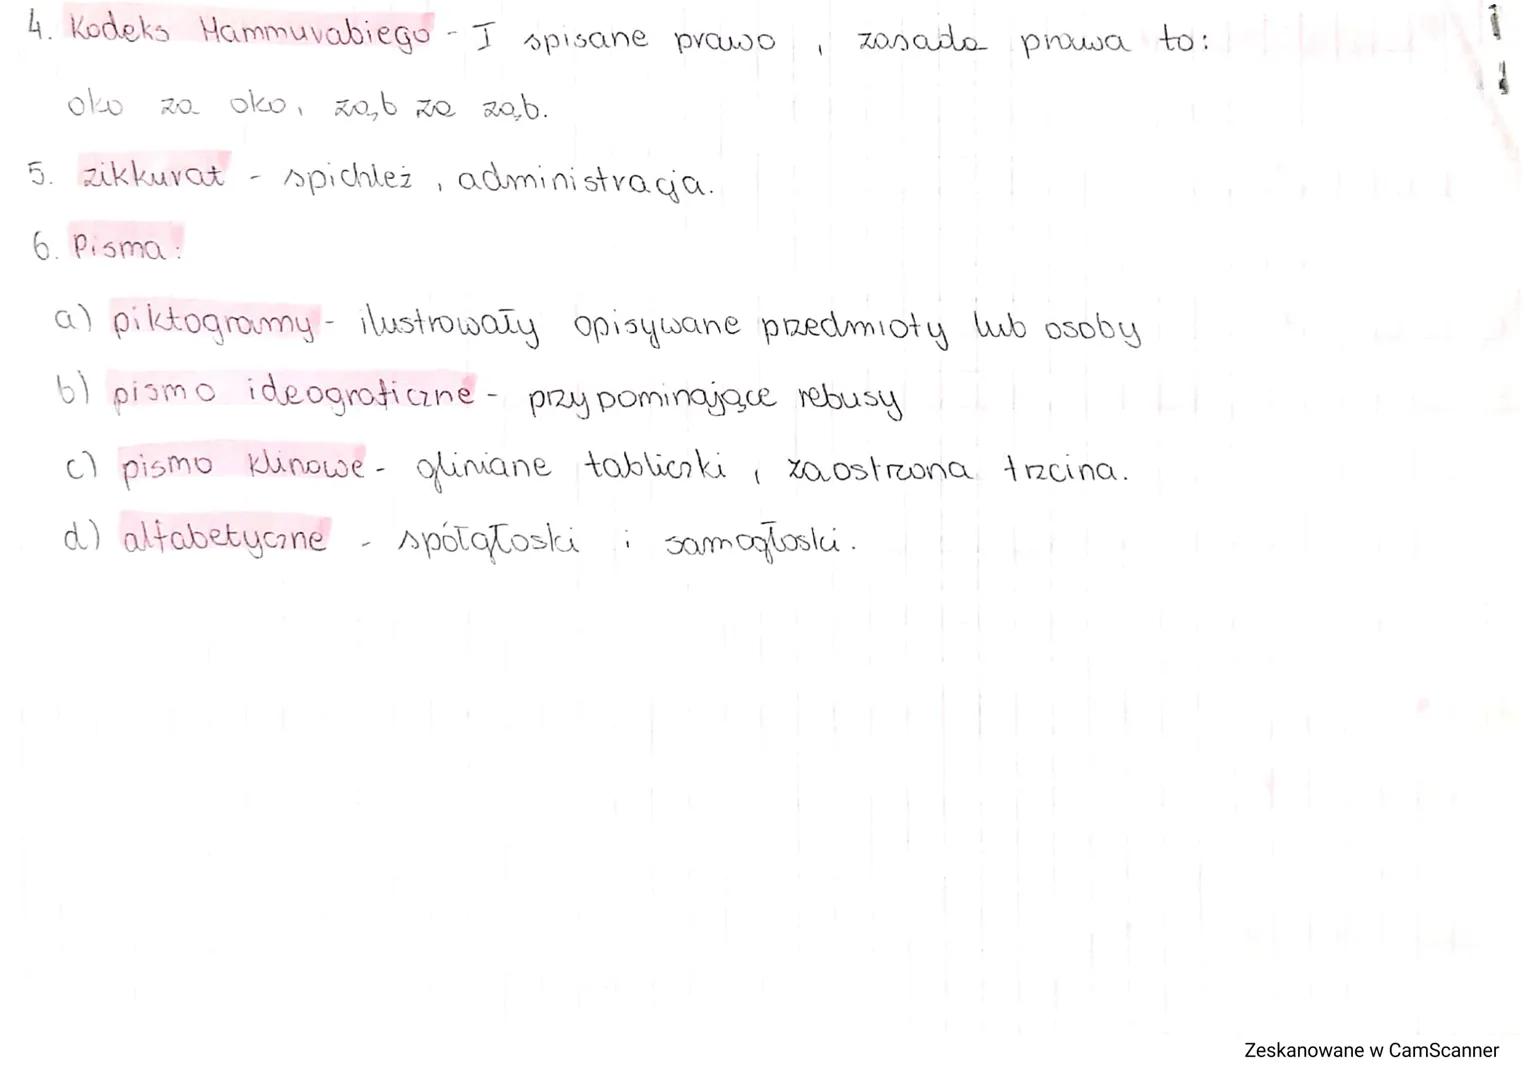 4. Kodeks Hammurabiego - I spisane prawo , zasada prawa to:
oko za oko, ząb za ząb.
5. zikkurat - spichleż , administracja.
6. Pisma:
a) piktogramy - ilustrowały opisywane przedmioty lub osoby
b) pismo ideograficzne - przypominające rebusy
c) pismo klinowe - gliniane tabliczki , zaostrzona trzcina.
d) alfabetyczne - spółgłoski i samogłoski.
Zeskanowane w CamScanner